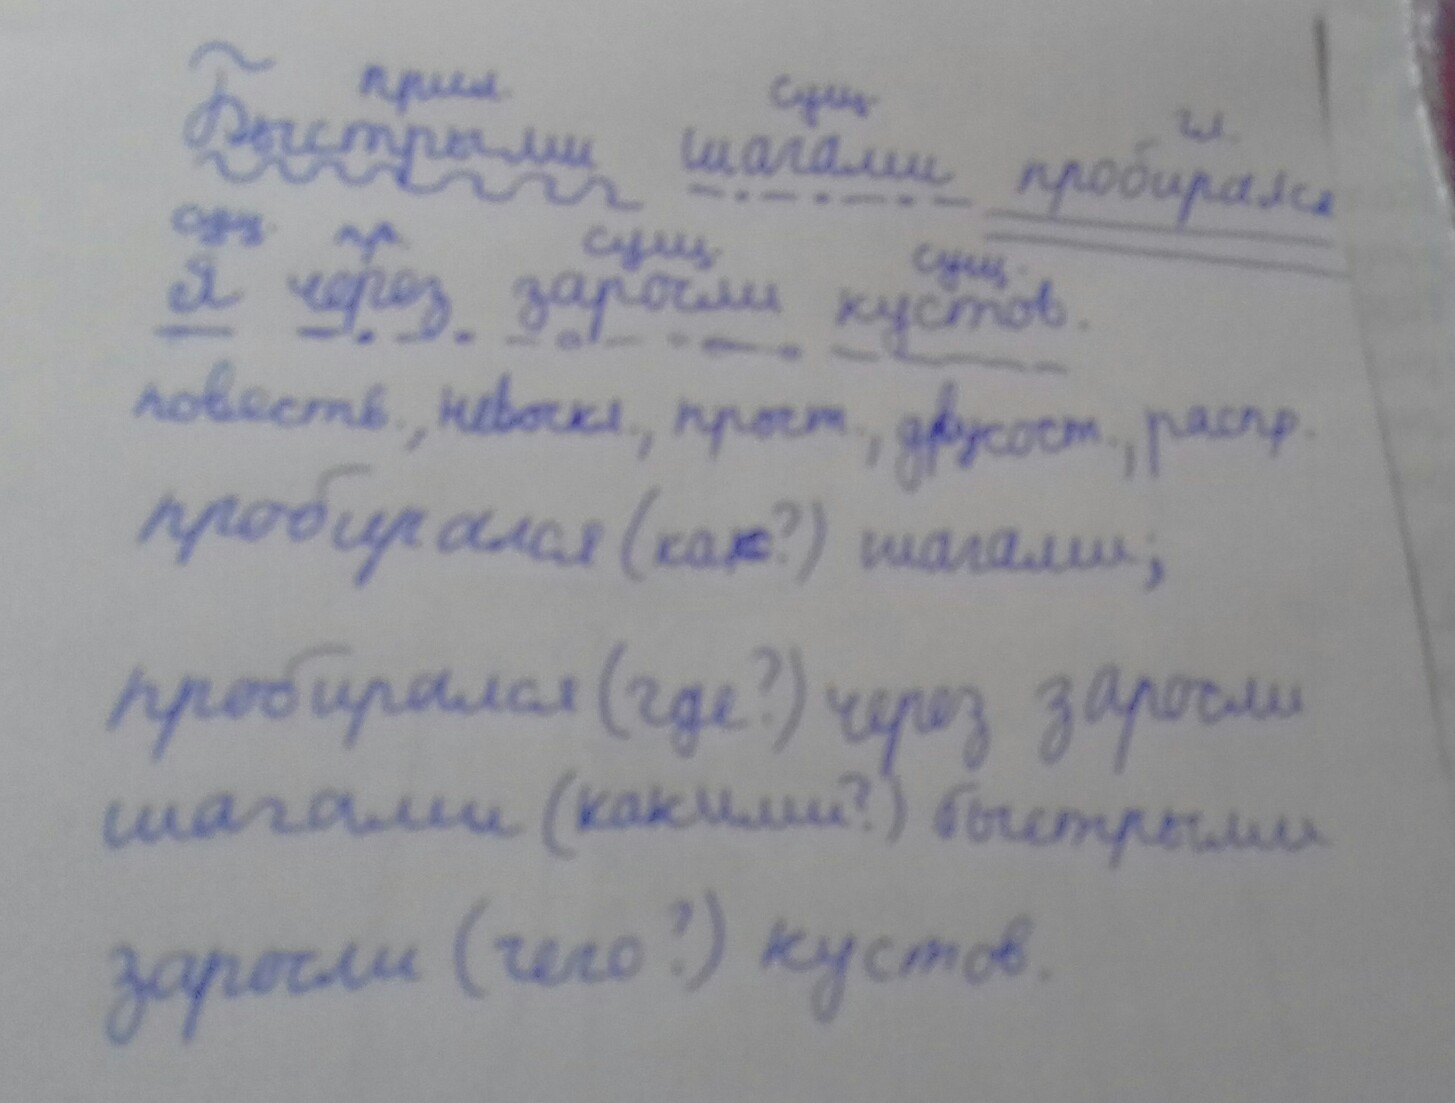 прил. сущ. гл.
Быстрыми шагами пробирался
сущ. пр. сущ. сущ.
я через заросли кустов.
повеств., невоскл., прост., двусост., распр.
пробирался (как?) шагами;
пробирался (где?) через заросли
шагами (какими?) быстрыми
заросли (чего?) кустов.